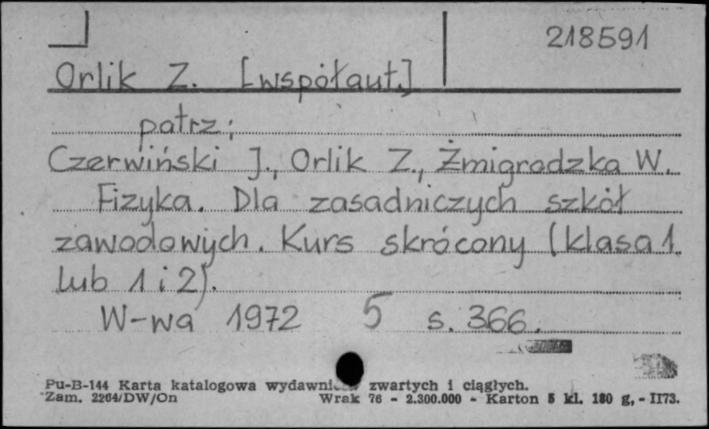 218591
Orlik Z. [współaut.]
patrz:
Czerwiński J., Orlik Z., Żmigrodzka W.
Fizyka. Dla zasadniczych szkół
zawodowych. Kurs skrócony (klasa 1
lub 1 i 2).
W-wa 1972 5 s. 366.
Pu-B-144 Karta katalogowa zwartych i ciągłych.
Zam. 2264/DW/On Wrak 76 - 2.300.000 - Karton 5 kl. 180 g, - II73.